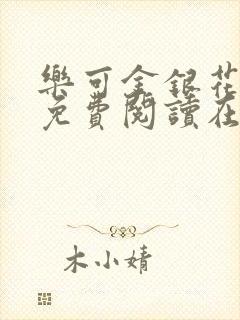 樂可金銀花
免費閱讀在
木小婧